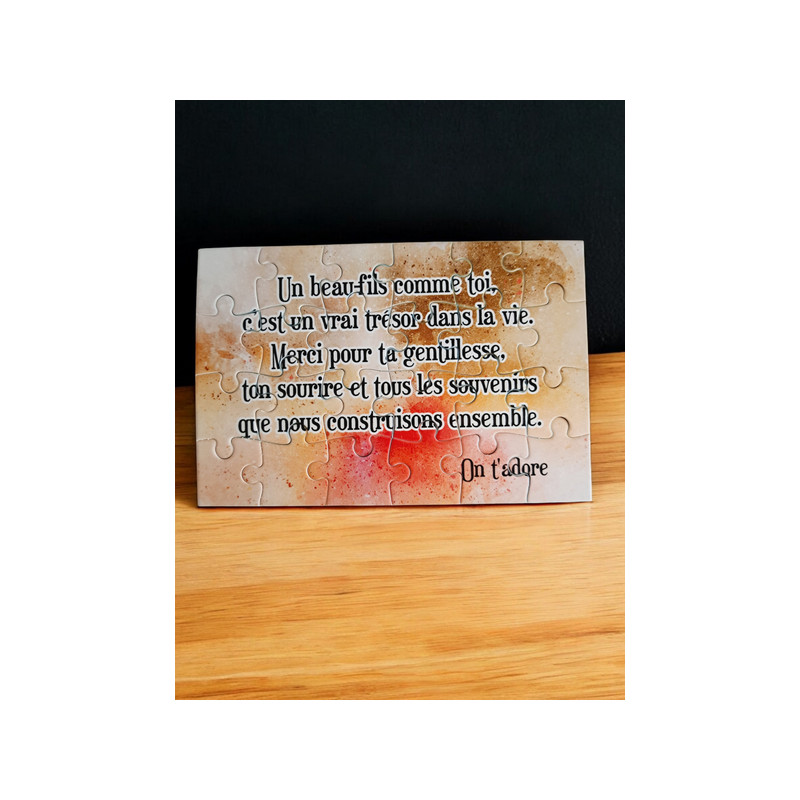 Un beau-fils comme toi,
c'est un vrai trésor dans la vie.
Merci pour ta gentillesse,
ton sourire et tous les souvenirs
que nous construisons ensemble.
On t'adore